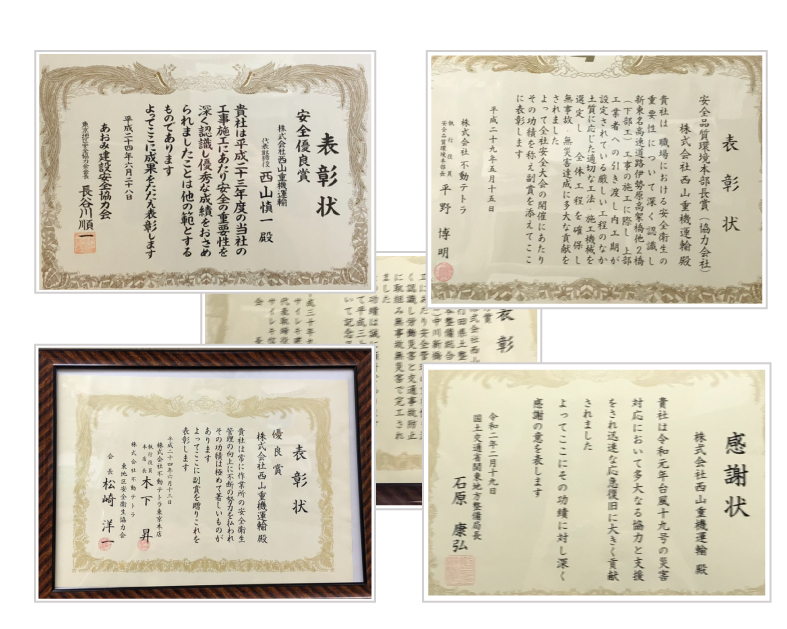 表彰状
安全優良賞
株式会社西山重機運輸
代表取締役 西山慎一 殿
貴社は平成二十三年度の当社の
工事施工にあたり安全の重要性を
深く認識し優秀な成績をおさめ
られましたことは他の範とする
ものであります
よってここに成果をたたえ表彰します
平成二十四年六月二十八日
あおみ建設安全協力会
長谷川順一
表彰状
安全品質環境本部長賞(協力会社)
株式会社西山重機運輸 殿
貴社は 職場における安全衛生の
重要性について深く認識し
新東名高速道路伊勢原高架橋他2橋
(下部工)工事の施工に際し 上部
工業者への引き渡し内工期が
設定されている厳しい工程のなか
土質に応じた適切な工法 施工機械を
選定し 全体工程を確保し
無事故 無災害達成に多大な貢献を
されました
よって全社安全大会の開催にあたり
その功績を称え副賞を添えてここ
に表彰します
平成二十九年五月十五日
株式会社不動テトラ
執行役員
安全品質環境本部長 平野博明
表彰
表彰状
優良賞
株式会社西山重機運輸殿
貴社は常に作業所の安全衛生
管理の向上に不断の努力を払われ
その功績は極めて著しいものが
あります
よってここに副賞を贈りこれを
表彰します
平成二十四年六月十三日
株式会社不動テトラ東京本店
執行役員
本店長 木下 昇
株式会社不動テトラ
東地区安全衛生協力会
会長 松崎 洋一
感謝状
株式会社西山重機運輸 殿
貴社は令和元年台風十九号の災害
対応において多大なる協力と支援
をされ迅速な応急復旧に大きく貢献
されました
よってここにその功績に対し深く
感謝の意を表します
令和二年二月十九日
国土交通省関東地方整備局長
石原 康弘